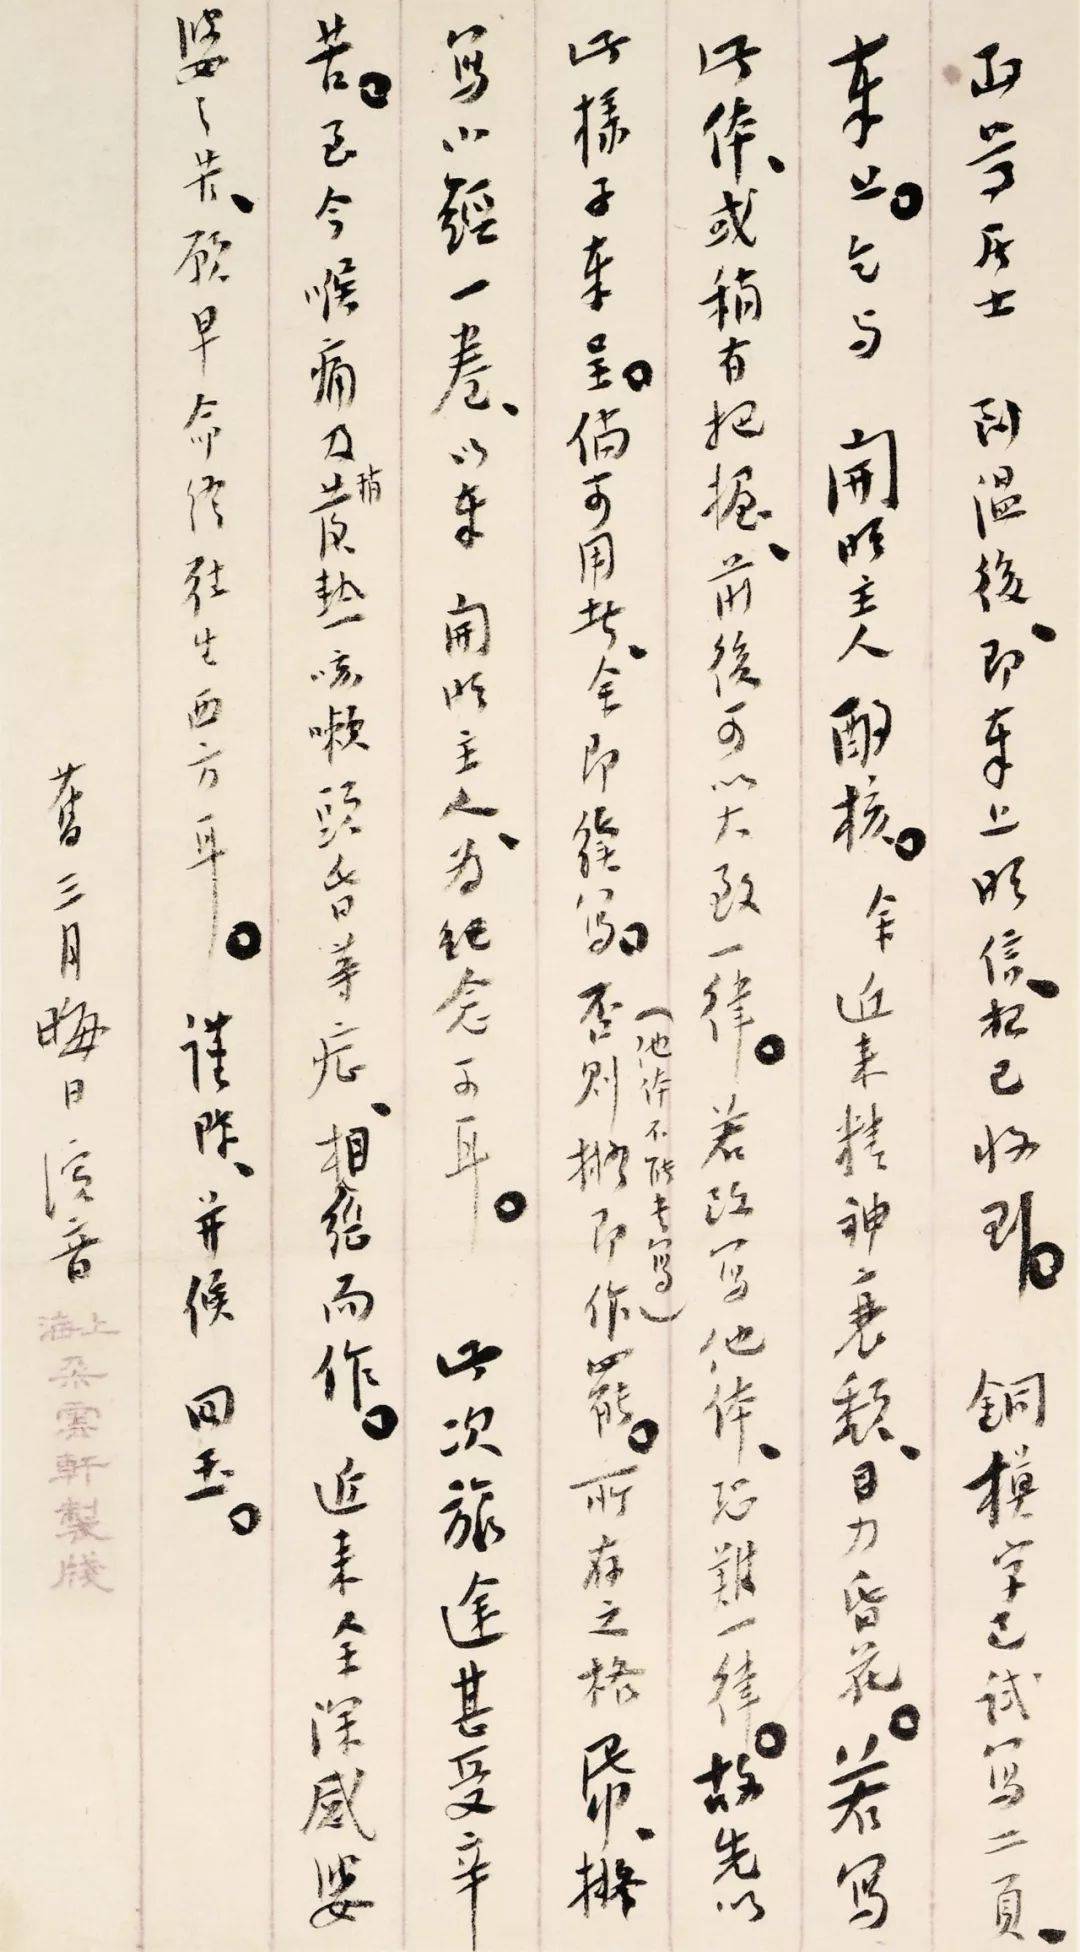 丏尊居士　到温後、即奉上明信、想已收到。銅模字已試寫二頁、
奉上。乞与　開明主人酌核。余近來精神衰頹、目力昏花。若寫
此体、或稍有把握、前後可以大致一律。若改寫他体、恐難一律。故先以
此樣子奉呈。倘可用者、余即續寫。否則擬即作罷。(他体不能書寫)所存之格帋、擬
寫小經一卷、以奉　開明主人、为紀念可耳。　此次旅途甚受辛
苦。至今喉痛及稍發熱咳嗽頭昏等症、相繼而作。近來余深感娑
婆之苦、願早命終往生西方耳。　謹陳、并候　回玉。
舊三月晦日演音
上海朵雲軒製牋